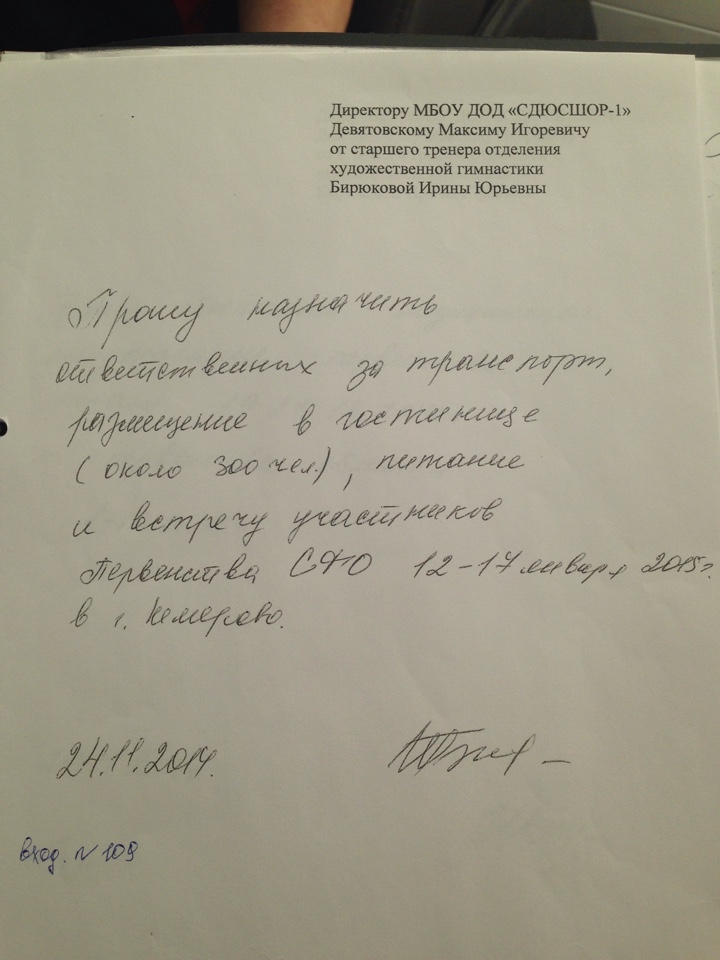 Директору МБОУ ДОД «СДЮСШОР-1»
Девятовскому Максиму Игоревичу
от старшего тренера отделения
художественной гимнастики
Бирюковой Ирины Юрьевны
Прошу назначить
ответственных за транспорт,
размещение в гостинице
(около 300 чел.), питание
и встречу участников
Первенства СФО 12-17 января 2015г.
в г. Кемерово.
24.11.2014.
вход. № 109